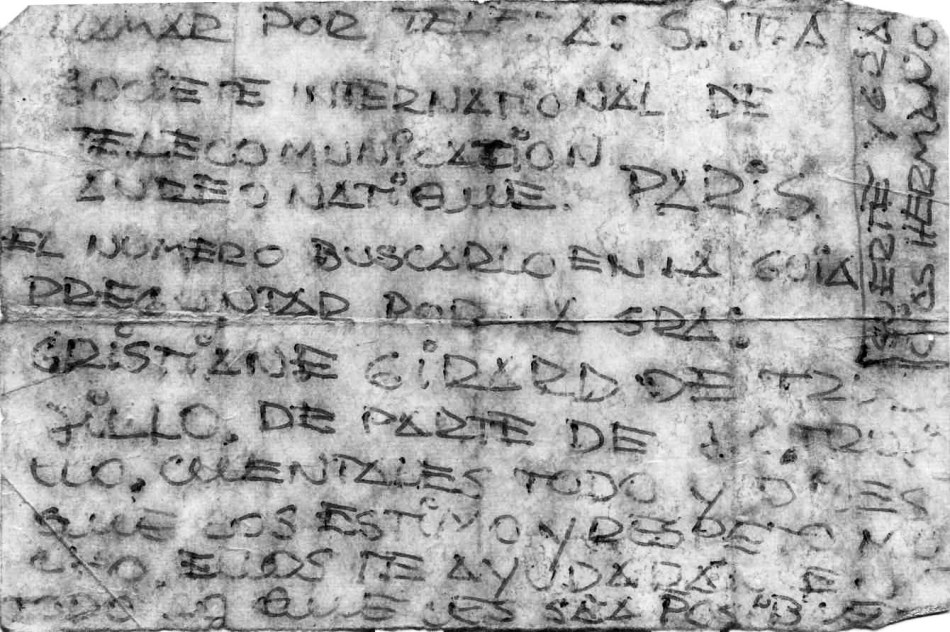 LLAMAR POR TELEF. A: S.I.T.A
SOCIETE INTERNATIONAL DE
TELECOMUNICATION
AUREONATIQUE. PARIS.
EL NUMERO BUSCARLO EN LA GUIA
PREGUNTAR POR LA SRA:
CRISTIANE GIRARD DE
JILLO. DE PARTE DE
CUENTALES TODO Y DILES
QUE LOS ESTIMO Y RESPETO
ELLOS TE AYUDARAN E
TODO LO QUE LES SEA POSIBLE
SUERTE Y GRA
CIAS HERMANO